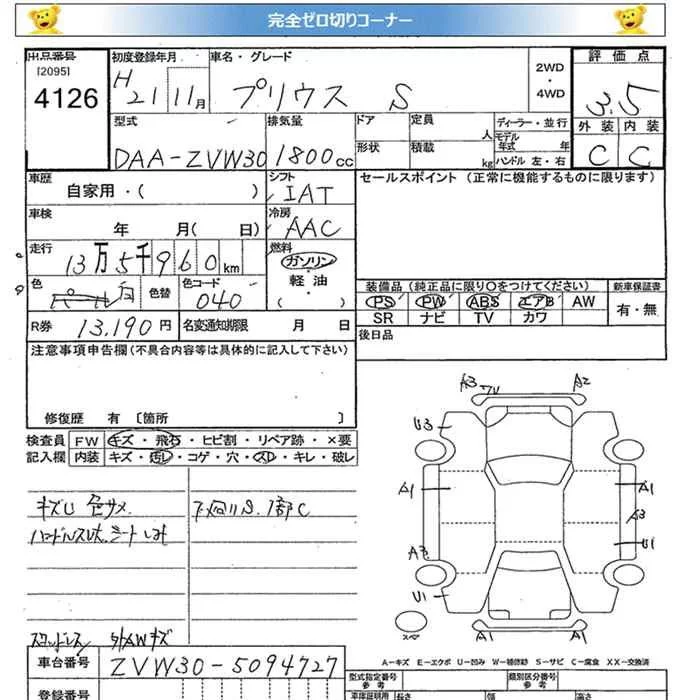 完全ゼロ切りコーナー
出品番号 初度登録年月 車名・グレード 評価点
[2095] 4126 H21 11月 プリウス S 2WD・4WD 3.5
型式 排気量 ドア 定員 人 ディーラー・並行 外装 内装
DAA-ZVW30 1800cc 形状 積載 kg モデル年式 年 ハンドル 左・右 C C
車歴 シフト セールスポイント (正常に機能するものに限ります)
自家用・( ) IAT
車検 冷房
年 月( 日) AAC
走行 燃料
13万5千960km ガソリン・軽油・( )
色 色替 色コード 装備品 (純正品に限り○をつけてください) 新車保証書
パール 白 040 PS PW ABS エアB AW 有・無
SR ナビ TV カワ
R券 13,190円 名変通知期限 月 日 後日品
注意事項申告欄(不具合内容等は具体的に記入して下さい)
修復歴 有 [箇所 ]
検査員 FW キズ・飛石・ヒビ割・リペア跡・×要
記入欄 内装 キズ・汚レ・コゲ・穴・スレ・キレ・破レ
A3 A2
U3
A1 A1
キズU 色サメ 下回りS.1部C A3
U1
A3
U1
スペア A1 A1
外AWキズ
車台番号 ZVW30-5094727
A-キズ E-エクボ U-凹み W-補修跡 S-サビ C-腐食 XX-交換済
登録番号 型式指定番号 参考 類別区分番号 参考
車庫証明用 参考 長さ 幅 高さ